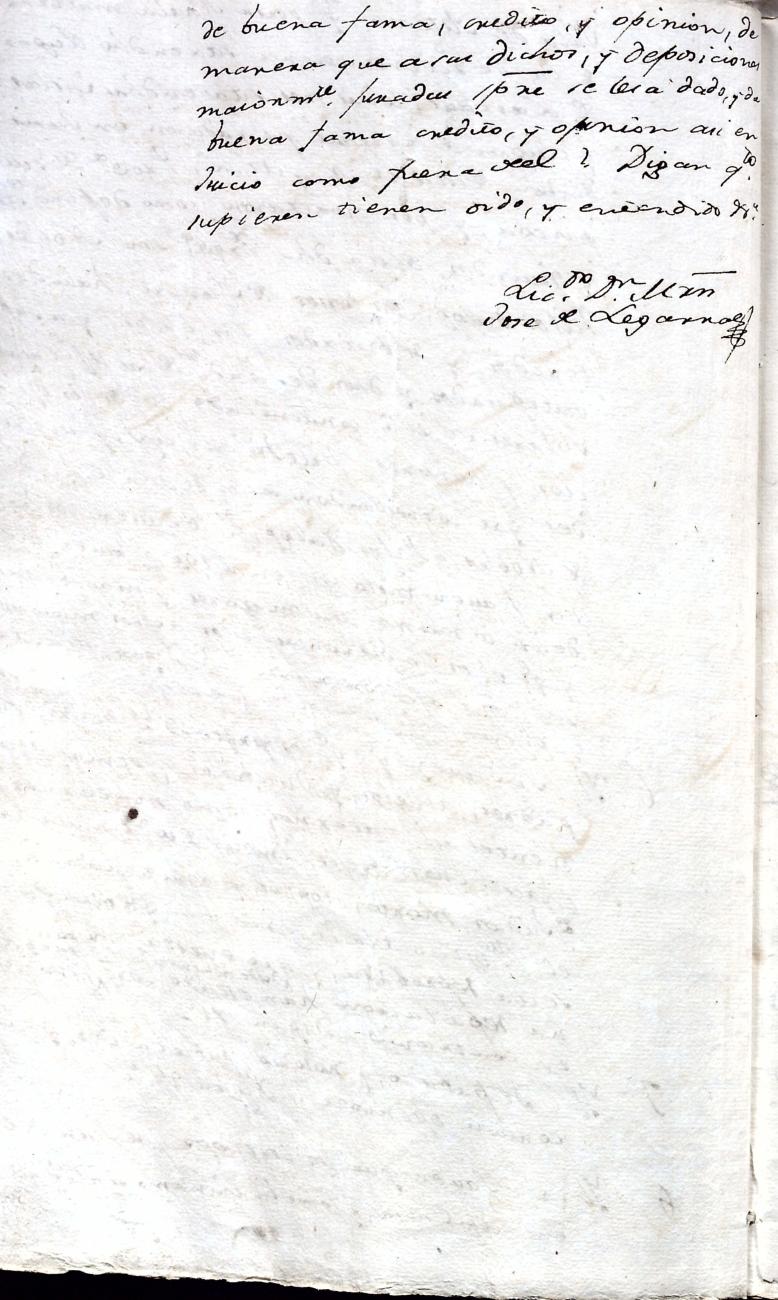 de buena fama, credito, y opinion, de
manera que a sus dichos, y deposiciones
maiormte. juradas spre se les a dado, y da
buena fama credito, y opinion asi en
Juicio como fuera del? Digan qto.
supieren tienen oido, y entendido &ª.
Licdo. Dn. Mrn
Jose de Legarra